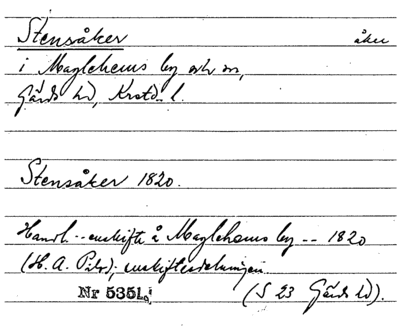 Stensåker åker
i Maglehems by och sn,
Gärds hd, Krstd. l.
Stensåker 1820.
Handl. -- enskifte å Maglehems by -- 1820
(H. A. Pihr): enskiftesdelningen.
Nr 5351
(S 23 Gärds hd).